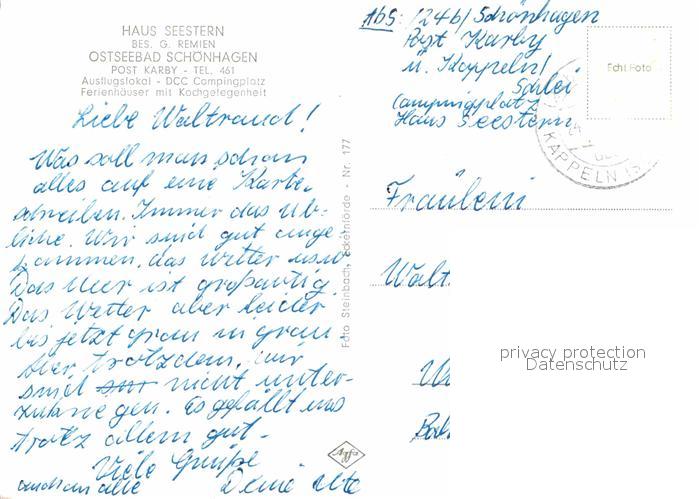 HAUS SEESTERN
BES. G. REMIEN
OSTSEEBAD SCHÖNHAGEN
POST KARBY - TEL. 461
Ausflugslokal - DCC Campingplatz
Ferienhäuser mit Kochgelegenheit
Liebe Waltraud!
Was soll man schon
alles auf eine Karte
schreiben. Immer das Üb-
liche. Wir sind gut ange
kommen, das Wetter usw.
Das Meer ist großartig.
Das Wetter aber leider
bis jetzt grau in grau
Aber trotzdem, wir
sind nicht unter-
zukriegen. Es gefällt uns
trotz allem gut.
Viele Grüße
auch an alle Deine alte
Foto Steinbach, Eckernförde - Nr. 177
Agfa
Abs: (24b) Schönhagen
Post Karby
ü. Kappeln/
Schlei
Campingplatz
Haus Seestern
Echt Foto
KAPPELN
Fräulein
Walt.
privacy protection
Datenschutz